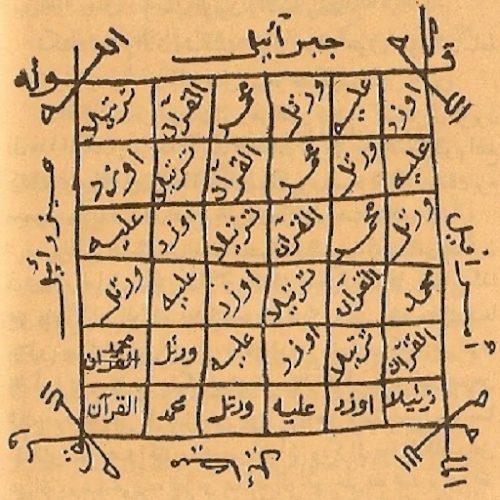 جبرآئيل
الله
وله
اوزد عليه ورتل محمد القرآن ترتيلا
عليه ورتل محمد القرآن ترتيلا اوزد
ورتل محمد القرآن ترتيلا اوزد عليه
محمد القرآن ترتيلا اوزد عليه ورتل
القرآن ترتيلا اوزد عليه ورتل محمد القرآن
ترتيلا اوزد عليه ورتل محمد القرآن
اسرافيل
عزرائيل
ميكائيل